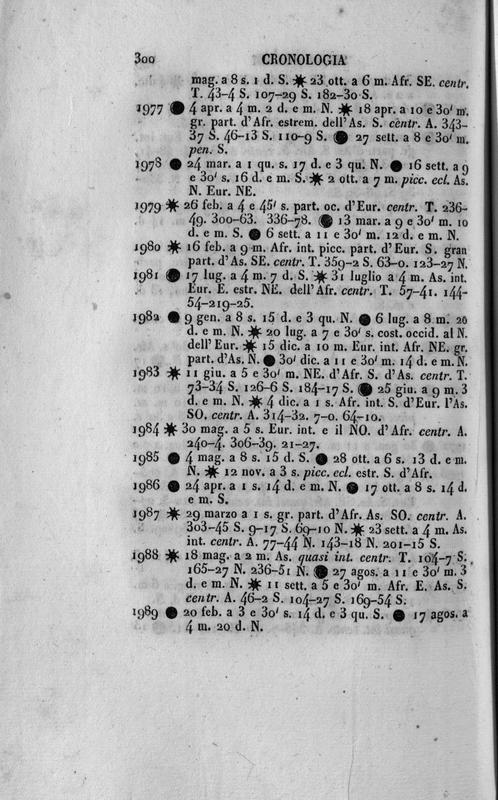 300 CRONOLOGIA
mag. a 8 s. 1 d. S. ✷ 23 ott. a 6 m. Afr. SE. centr.
T. 43-4 S. 107-29 S. 182-30 S.
1977 ● 4 apr. a 4 m. 2 d. e m. N. ✷ 18 apr. a 10 e 30' m.
gr. part. d'Afr. estrem. dell'As. S. centr. A. 343-
37 S. 46-13 S. 110-9 S. ● 27 sett. a 8 e 30' m.
pen. S.
1978 ● 24 mar. a 1 qu. s. 17 d. e 3 qu. N. ● 16 sett. a 9
e 30' s. 16 d. e m. S. ✷ 2 ott. a 7 m. picc. ecl. As.
N. Eur. NE.
1979 ✷ 26 feb. a 4 e 45' s. part. oc. d'Eur. centr. T. 236-
49. 300-63. 336-78. ● 13 mar. a 9 e 30' m. 10
d. e m. S. ● 6 sett. a 11 e 30' m. 12 d. e m. N.
1980 ✷ 16 feb. a 9 m. Afr. int. picc. part. d'Eur. S. gran
part. d'As. SE. centr. T. 359-2 S. 63-0. 123-27 N.
1981 ● 17 lug. a 4 m. 7 d. S. ✷ 31 luglio a 4 m. As. int.
Eur. E. estr. NE. dell'Afr. centr. T. 57-41. 144-
54-219-25.
1982 ● 9 gen. a 8 s. 15 d. e 3 qu. N. ● 6 lug. a 8 m. 20
d. e m. N. ✷ 20 lug. a 7 e 30' s. cost. occid. al N.
dell'Eur. ✷ 15 dic. a 10 m. Eur. int. Afr. NE. gr.
part. d'As. N. ● 30 dic. a 11 e 30' m. 14 d. e m. N.
1983 ✷ 11 giu. a 5 e 30' m. NE. d'Afr. S. d'As. centr. T.
73-34 S. 126-6 S. 184-17 S. ● 25 giu. a 9 m. 3
d. e m. N. ✷ 4 dic. a 1 s. Afr. int. S. d'Eur. l'As.
SO. centr. A. 314-32. 7-0. 64-10.
1984 ✷ 30 mag. a 5 s. Eur. int. e il NO. d'Afr. centr. A.
240-4. 306-39. 21-27.
1985 ● 4 mag. a 8 s. 15 d. S. ● 28 ott. a 6 s. 13 d. e m.
N. ✷ 12 nov. a 3 s. picc. ecl. estr. S. d'Afr.
1986 ● 24 apr. a 1 s. 14 d. e m. N. ● 17 ott. a 8 s. 14 d.
e m. S.
1987 ✷ 29 marzo a 1 s. gr. part. d'Afr. As. SO. centr. A.
303-45 S. 9-17 S. 69-10 N. ✷ 23 sett. a 4 m. As.
int. centr. A. 77-44 N. 143-18 N. 201-15 S.
1988 ✷ 18 mag. a 2 m. As. quasi int. centr. T. 104-7 S.
165-27 N. 236-51 N. ● 27 agos. a 11 e 30' m. 3
d. e m. N. ✷ 11 sett. a 5 e 30' m. Afr. E. As. S.
centr. A. 46-2 S. 104-27 S. 169-54 S.
1989 ● 20 feb. a 3 e 30' s. 14 d. e 3 qu. S. ● 17 agos. a
4 m. 20 d. N.